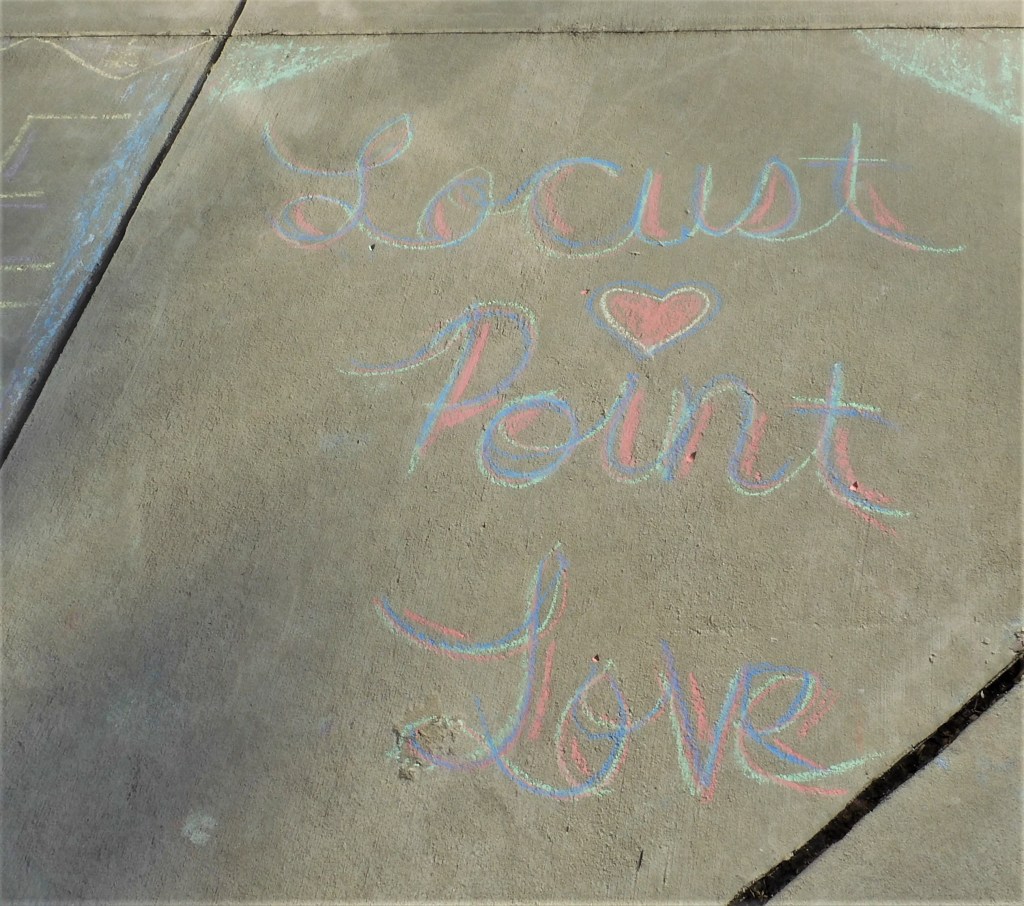 Locust
Point
Love